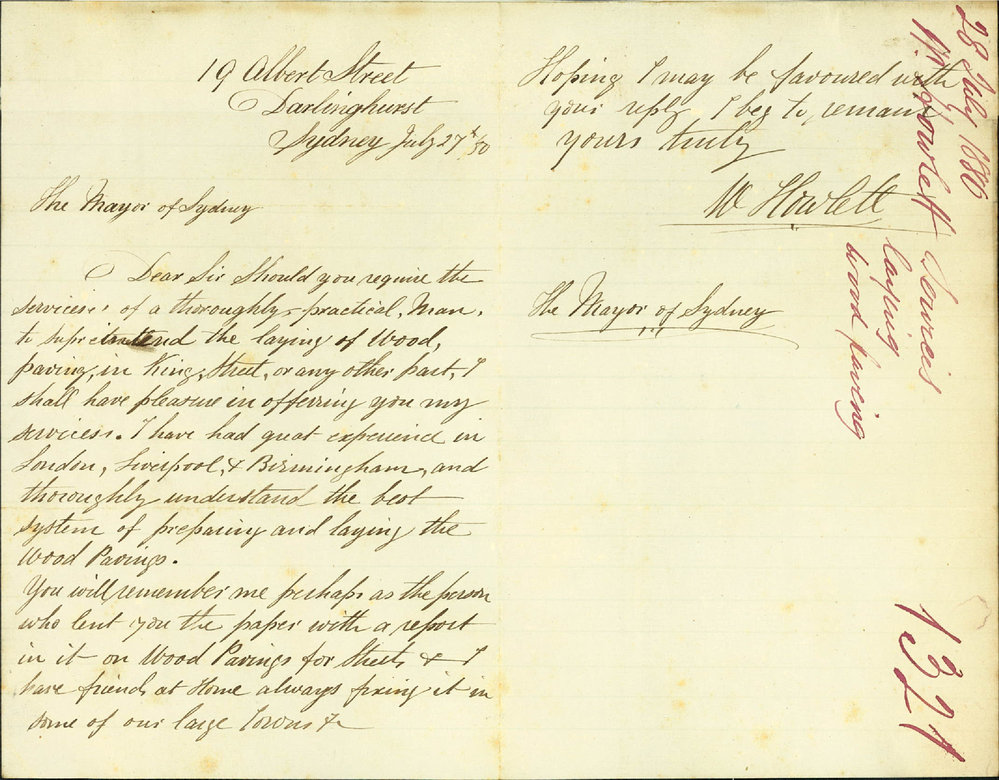 19 Albert Street
Darlinghurst
Sydney July 27th/80
The Mayor of Sydney
Dear Sir Should you require the
services of a thoroughly practical, Man,
to suprintend the laying of Wood,
paving, in King, Street, or any other part, I
shall have pleasure in offerring you my
services. I have had great experience in
London, Liverpool, & Birmingham, and
thoroughly understand the best
system of preparing and laying the
Wood Pavings.
You will remember me perhaps as the person
who lent you the paper with a report
in it on Wood Pavings for Streets & I
have friends at Home always fixing it in
some of our large Towns &c
Hoping I may be favoured with
your reply I beg to, remain
yours truly
W Howlett
The Mayor of Sydney
28 July 1880
W Howlett Services
laying
wood paving
1321